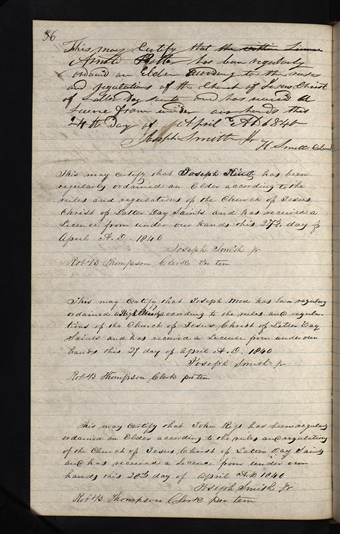 86
This may Certify that the
has been regularly
ordaind an Elder according to the rules
and regulations of the Church of Jesus Christ
of Latter Day Saints and has received a
licence from under our hands this
24th Day of April AD 1840
Joseph Smith Jr
H. Smith
This may certify that Joseph has been
regularly ordained an Elder according to the
rules and regulations of the Church of Jesus
Christ of Latter Day Saints and has received a
Licence from under our hands this 27th day of
April A. D. 1840
Joseph Smith jr
Robt B Thompson Clerk Pro tem
This may Certify that Joseph has been regularly
ordained a High Priest according to the rules and regula-
tions of the Church of Jesus Christ of Latter Day
Saints and has received a Licence from under our
hands this 27 day of April A. D. 1840
Joseph Smith jr
Robt B Thompson Clerk pro tem
This may certify that John has been regularly
ordained an Elder according to the rules and regulations
of the Church of Jesus Christ of Latter Day Saints
and has received a Licence from under our
hands this day of April A D 1840
Joseph Smith Jr
Robt B Thompson Clerk pro tem